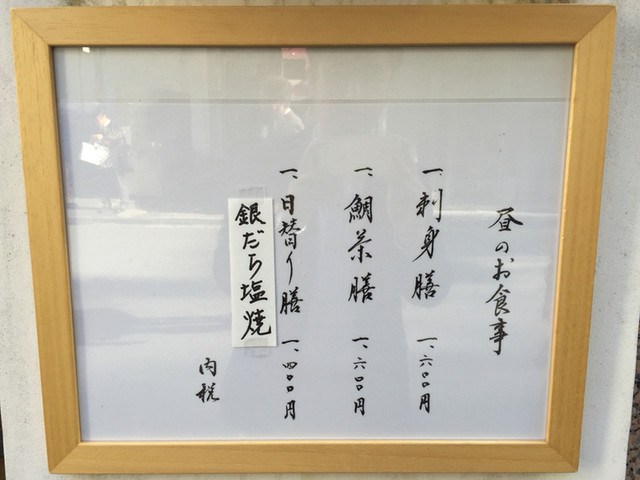 昼のお食事
一、刺身膳 一、六〇〇円
一、鯛茶膳 一、六〇〇円
一、日替り膳 一、四〇〇円
銀だら塩焼
内税